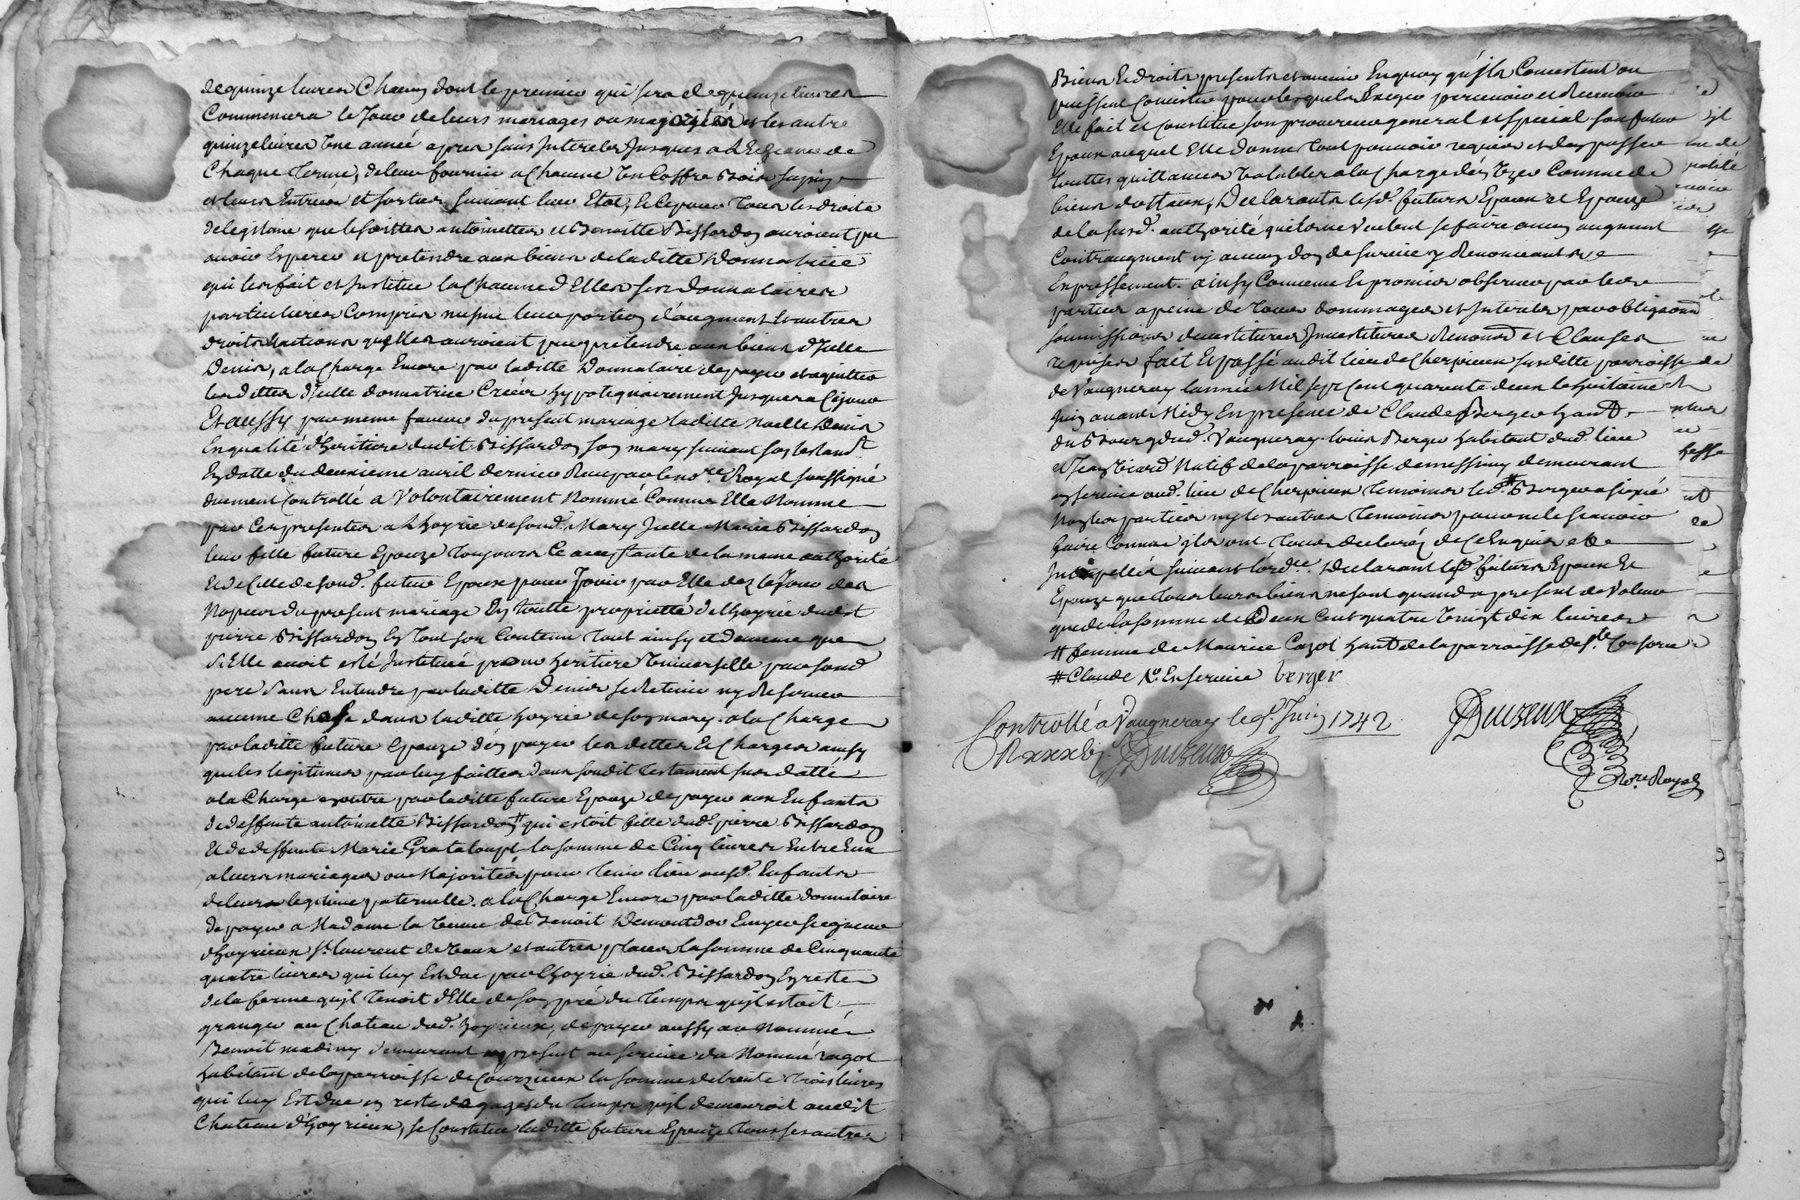 de quinze livres Chacun dont le premier qui sera de quinze livres
Commencera le Jour de leurs mariages ou majorités et les autre
quinze livres Une année apres sans Interets Jusques a L'Echeance de
Chaque terme, de leur fournir a Chacune Un Coffre Bois sapin
et leurs Entrées et sorties suivant leur Etat, Et ce pour tous les droits
de legitime que lesdittes antoinette et Benoitte Biffardon auroient pu
avoir Esperer et pretendre aux biens de laditte Donnatrice
qui les fait et Institue la Chacune d'Elles ses donnataires
particulieres Compris mesme leur portion d'augment Et autres
droits & actions qu'elles auroient pu pretendre aux biens d'Icelle
Denis, a la Charge Encore par laditte Donnataire de payer et aquitter
les dettes d'icelle donnatrice Créés hypotequairement Jusques a Cejourd
Et aussy par meme faveur du present mariage laditte Noelle Denis
En qualité d'heritiere dudit Biffardon son mary suivant son testamt
En datte du deuxieme avril dernier Reçu par le nre Royal soussigné
duement Controllé a Volontairement Nommé Comme Elle Nomme
par Ces presentes a L'hoyrie de sond. Mary Icelle Marie Biffardon
leur fille future Epouze toujours Ce acceptante de la meme authorité
Et de Celle de sond. futur Epoux pour Jouir par Elle dez le Jour des
Nopces du present mariage En toutte proprietté de l'hoyrie dudit
pierre Biffardon En tout son Contenu tout ainsy et de meme que
si Elle avoit esté Instituée pour heritiere Universelle par sond
pere sans Entendre par laditte Denis se Retenir ny Reserver
aucune Chose dans laditte hoyrie de son mary. a la Charge
par laditte future Epouze d'en payer les dettes Et Charges ainsy
que les legitimes par luy faittes dans sondit testament susdatté
a la Charge en outre par laditte future Epouze de payer aux Enfants
de deffunte antoinette Biffardon # qui estoit fille dud. pierre Biffardon
Et de deffunte Marie Grataloup la somme de Cinq livres Entre Eux
a leurs mariages ou Majorités pour tenir lieu ausd. Enfants
de leurs legitime paternelle. a la Charge Encore par laditte donnataire
de payer a Madame la Veuve de Benoit Demontdor Ecuyer seigneur
d'hoyrieux St laurent de Vaux et autres places la somme de Cinquante
quatre livres qui luy Est due par l'hoyrie dud. Biffardon En reste
de la ferme qu'il tenoit d'Elle de son pré du temps qu'il estoit
granger au Chateau dud. hoyrieux, de payer aussy au Nommé
Benoit madiny demeurant a present au service du Nommé ragot
habitant de la parroisse de Courzieux la somme de trente trois livres
qui luy Est due en reste de gages du temps qu'il demeuroit audit
Chateau d'hoyrieux, se Constitue laditte future Epouze tous ses autres
Biens Et droits presents et avenir En quoy qu'ils Consistent ou
puissent Consister pour lesquels Exiger percevoir et Recevoir
Elle fait et Constitue son procureur general et special son futur
Epoux auquel Elle donne tout pouvoir requis et d'en passer
touttes quittances Valables a la Charge d'en Uzer Comme de
biens dottaux, Declarants lesd. futurs Epoux et Epouze
de la susd. authorité qu'ils ne Veulent se faire aucun augment
Contraugment ny aucun don de survie y Renonceants
Expressement. ainsy Convenu Et promis observer par lesd
parties a peine de tous dommages et Interets par obligaons
soumissions devestitures Investitures Renonons et Clauses
requises fait Et passé audit lieu de Cherpieux susditte parroisse
de Vaugneray l'année Mil sept Cent quarante deux le huitieme
Juin avant Midy En presence de Claude Berger hant
du Bourg dud. Vaugneray louis Berger habitant dud. lieu
et Jean Vicard Natif de la parroisse de messimy demeurant
en service aud. lieu de Cherpieux temoins led. # Berger a signé
Non les parties ny les autres temoins pour ne le scavoir
faire Comme ils ont tous declarés de Ce Enquis et
Interpellés suivant l'ordce. Declarant lesd futurs Epoux Et
Epouze que tous leurs biens ne sont quand a present de Valeur
que de la somme de Deux Cent quatre Vingt dix livres
# femme de Maurice Cazot hant de la parroisse de Ste Consorce
# Claude Rd. En service berger
Controllé a Vaugneray le 9e. Juin 1742
Duvzeux
Duvzeux
Nre. Royal